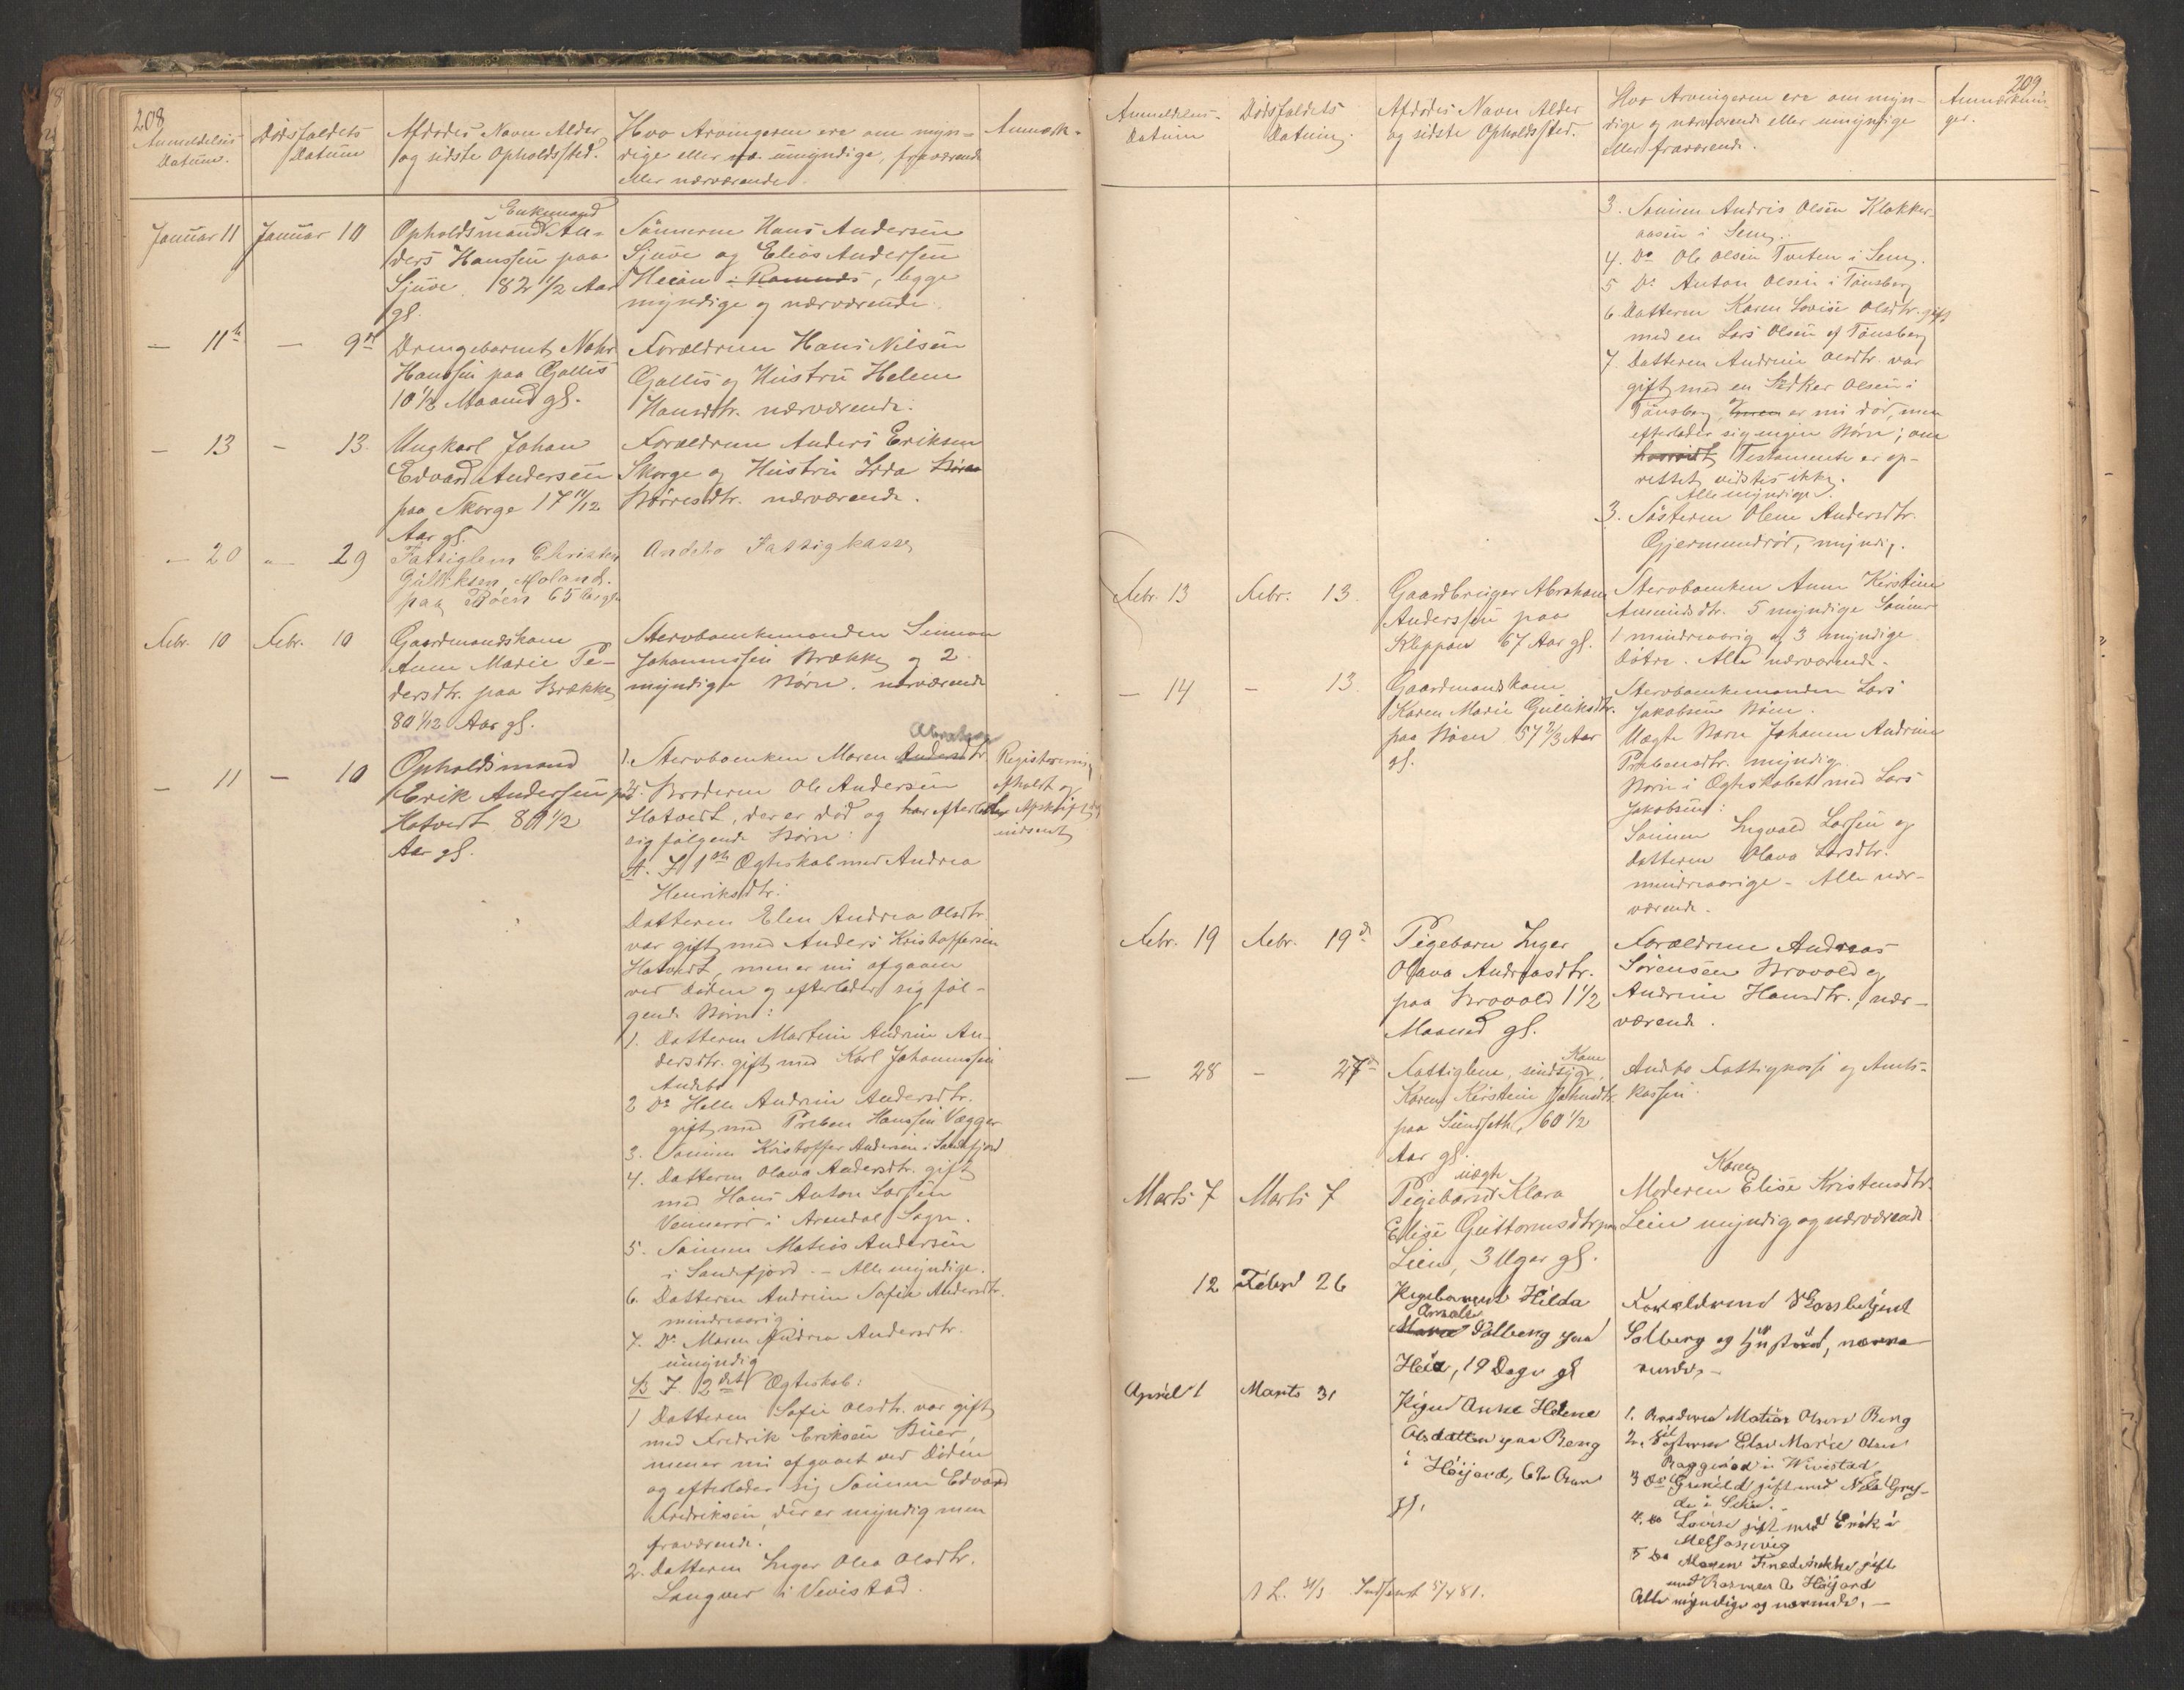 208
Anmeldelses
Datum.
Dødsfaldets
Datum
Afdødes Navn Alder
og sidste Opholdssted.
Hvo Arvingerne ere om myn-
dige eller umyndige, fraværende
eller nærværende.
Anmærk-
Januar 11
Januar 10
Enkemand
Opholdsmand An-
ders Hanssen paa
Sjuve 82 1/2 Aar
gl.
Sønnerne Hans Andersen
Sjuve og Elias Andersen
Heian i Ramnæs, begge
myndige og nærværende.
— 11te
— 9de
Drengebarnet Nahr
Hanssen paa Gallis
10 1/2 Maaned gl.
Forældrene Hans Nilsen
Gallis og Hustru Helene
Hansdtr. nærværende.
— 13
— 13.
Ungkarl Johan
Edvard Andersen
paa Skorge 17 11/12
Aar gl.
Forældrene Anders Eriksen
Skorge og Hustru Idda
Børresdtr. nærværende.
— 20
— 29
Fattiglem Christen
Gulliksen Moland
paa Bøen 65 Aar gl.
Andebo Fattigkasse,
Febr. 10
Febr. 10
Gaardmandskone
Anne Marie Pe-
dersdtr. paa Brække
80 1/12 Aar gl.
Stervboenkemanden Simon
Johannessen Brække og 2
myndige Børn. nærværende
— 11
— 10
Opholdsmand
Erik Andersen paa
Hotvedt 80 1/2
Aar gl.
Abrahams
1. Stervboenken Maren Andersdtr.
2. Broderen Ole Andersen
Hotvedt, der er død og har efterladt
sig følgende Børn:
Registrering
afholdt og
indsendt
A. I 1ste Ægteskab med Andrea
Henriksdtr:
Datteren Elen Andrea Olsdtr.
var gift med Anders Kristoffersen
Hotvedt, men er nu afgaaen
ved Døden og efterlader sig føl-
gende Børn:
1. Datteren Martine Andrine An-
dersdtr. gift med Karl Johannessen
Andebo
2 Do Helle Andrine Andersdtr.
gift med Preben Hanssen Vegger
3. Sønnen Kristoffer Andersen i Sandefjord
4. Datteren Olava Andersdtr. gift
med Hans Anton Larsen
Vennerød i Arendal Sogn.
5. Sønnen Matias Andersen
i Sandefjord. — Alle myndige.
6. Datteren Andrine Sofie Andersdtr.
mindreaarig.
7. Do Maren Andrea Andersdtr.
umyndig
B I 2det Ægteskab:
1 Datteren Sofie Olsdtr. var gift
med Fredrik Eriksen Buer,
men er nu afgaaet ved Døden
og efterlader sig Sønnen Edvard
Fredriksen, der er myndig men
fraværende.
2. Datteren Inger Olea Olsdtr.
Langver i Vivestad.
209
Anmeldelses-
Datum
Dødsfaldets
Datum.
Afdødes Navn Alder
og sidste Opholdssted.
Hvo Arvingerne ere om myn-
dige og nærværende eller umyndige
eller fraværende.
Anmærknin-
ger.
3. Sønnen Andris Olsen Klokker-
aasen i Sem.
4. Do Ole Olsen Tveten i Sem.
5 Do Anton Olsen i Tønsberg
6 Datteren Karen Lovise Olsdtr. gift
med en Lars Olsen af Tønsberg
7. Datteren Andrine Olsdtr. var
gift med en Olsen i
Tønsberg, og er nu død, men
efterlader sig ingen Børn; om
Testamente er op-
rettet vidstes ikke.
Alle myndige.
3. Søsteren Olene Andersdtr.
Gjermundrød, myndig.
Febr. 13
Febr. 13.
Gaardbruger Abraham
Anderssen paa
Kleppan 67 Aar gl.
Stervboenken Anne Kirstine
Amundsdtr. 5 myndige Sønner
1 mindreaarig og 3 myndige
Døtre. Alle nærværende.
— 14
— 13.
Gaardmandskone
Karen Marie Gulliksdtr.
paa Bøen 57 2/3 Aar
gl.
Stervboenkemanden Lars
Jakobsen Bøen.
Uægte Barn Johanne Andrine
Prebensdtr. myndig.
Børn i Ægteskabet med Lars
Jakobsen:
Sønnen Ingvald Larsen og
Datteren Olava Larsdtr.
mindreaarige. Alle nær-
værende.
Febr. 19
Febr. 19de
Pigebarn Inger
Olava Andreasdtr.
paa Brovold 1 1/2
Maaned gl.
Forældrene Andreas
Sørensen Brovold og
Andrine Hansdtr., nær-
værende.
— 28
— 27de
Kone
Fattiglem, sindssyge,
Karen Kirstine Johnsdtr.
paa Sundseth, 60 1/2
Aar gl.
Andebo Fattigkasse og Amts-
kassen.
Marts 7
Marts 7
uægte
Pigebarn Klara
Elise Guttormsdtr. paa
Lien, 3 Uger gl.
Karen
Moderen Elise Kristensdtr.
Lein myndig og nærværende
12
Febr 26
Pigebarnet Hilda
Amalie
Marie Solberg paa
Heia, 19 Dage gl
Forældrene
Solberg og Hustru, nærvæ-
rende, —
April 1
Marts 31
Pigen Anne Helene
Olsdatter paa Berg
i Høijord, 62 Aar
gl.
1. Broderen Matias Olsen Berg
2. Søsteren Else Marie Olsen
i Wivestad
3 Do Gunild gift med Nils
de i Sem.
4. Do Lovise gift med Erik i
Melsomvig
5 Do Maren Fredrikke gift
med Rasmus A Høijord
Alle myndige og nærværende. —
Indsendt 5/4 81.